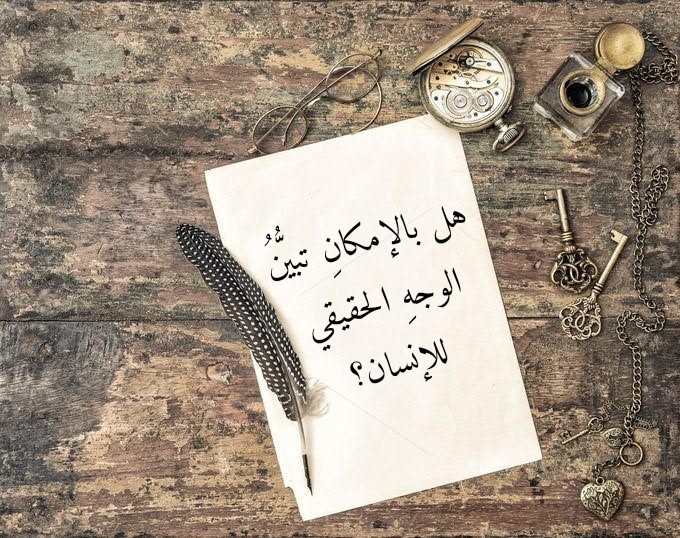 هل بالإمكانِ تبينُّ
الوجهِ الحقيقي
للإنسان؟